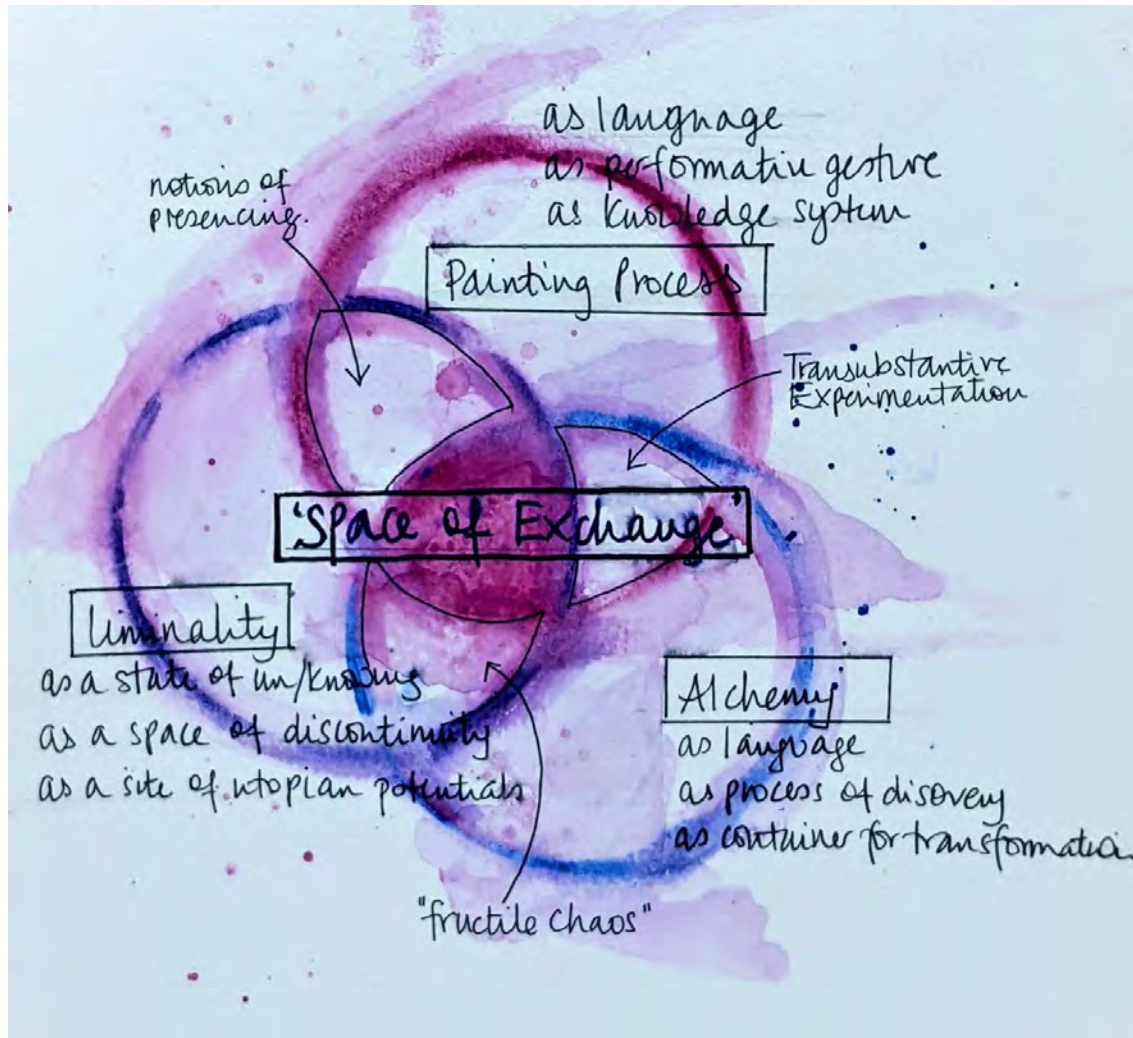 as language
as performative gesture
as knowledge system
notions of
presencing.
Painting Process
Transubstantive
Experimentation
'Space of Exchange'
Liminality
as a state of un/knowing
as a space of discontinuity
as a site of utopian potentials
Alchemy
as language
as process of discovery
as container for transformation
"fructile chaos"